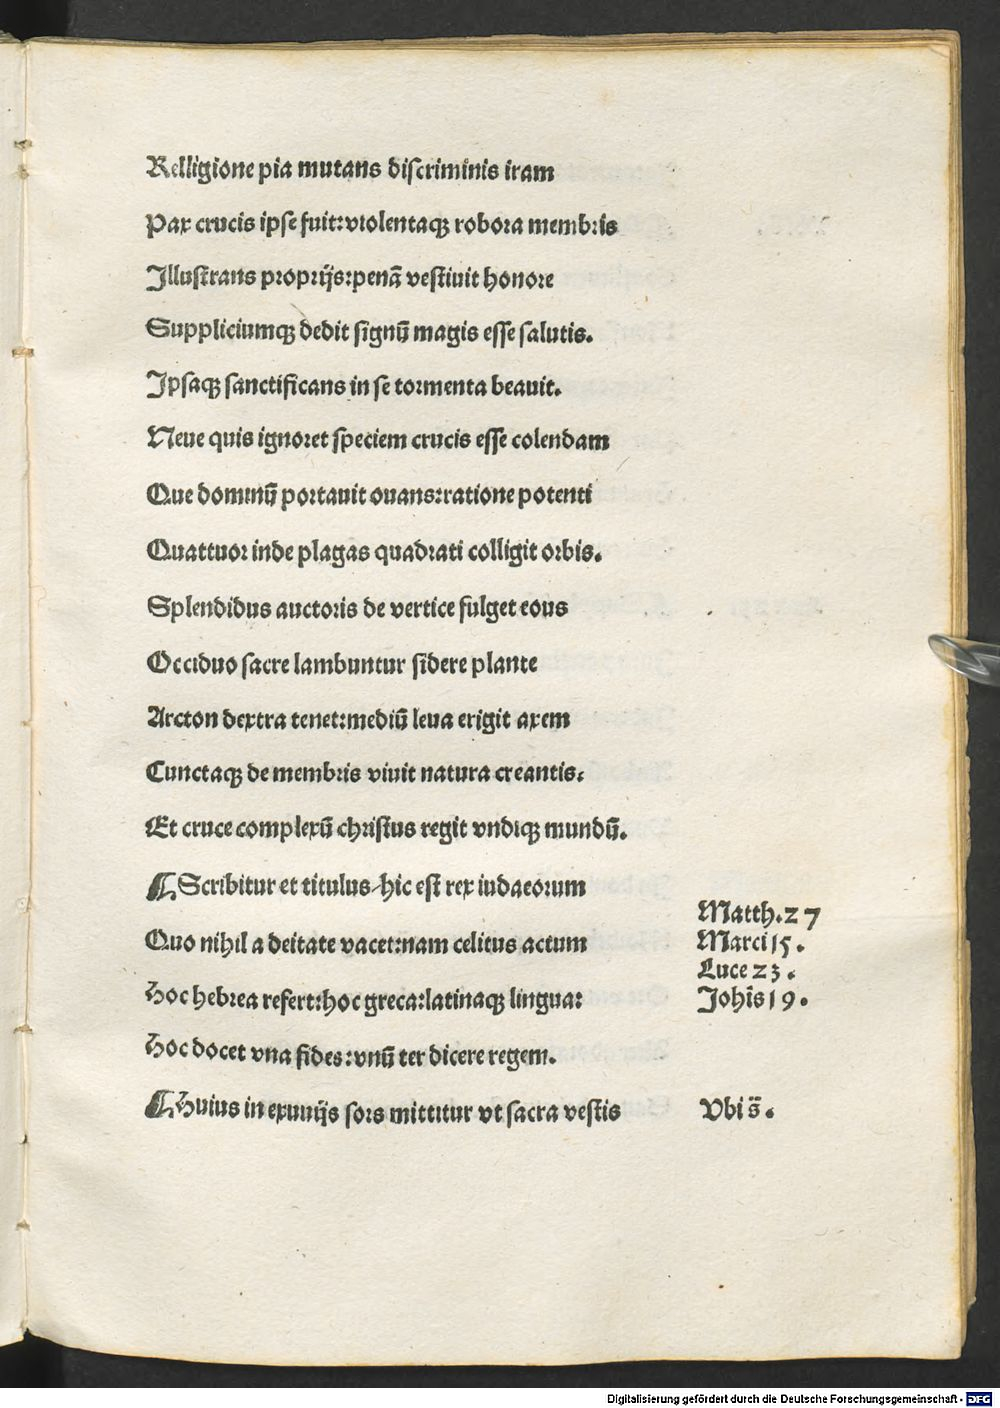 Relligione pia mutans discriminis iram
Pax crucis ipse fuit: violentaqꝫ robora membris
Illustrans proprijs: penã vestiuit honore
Suppliciumqꝫ dedit signũ magis esse salutis.
Ipsaqꝫ sanctificans in se tormenta beauit.
Neue quis ignoret speciem crucis esse colendam
Que dominũ portauit ouans: ratione potenti
Quattuor inde plagas quadrati colligit orbis.
Splendidus auctoris de vertice fulget eous
Occiduo sacre lambuntur sidere plante
Arcton dextra tenet: mediũ leua erigit axem
Cunctaqꝫ de membris viuit natura creantis:
Et cruce complexũ christus regit vndiqꝫ mundũ.
¶ Scribitur et titulus hic est rex iudaeorum
Matth. 27
Quo nihil a deitate vacet: nam celitus actum
Marci 15.
Luce 23.
Hoc hebrea refert: hoc greca: latinaqꝫ lingua:
Johis 19.
Hoc docet vna fides: vnũ ter dicere regem.
¶ Huius in exuuijs sors mittitur vt sacra vestis
Vbi s̃.
Digitalisierung gefördert durch die Deutsche Forschungsgemeinschaft - DFG